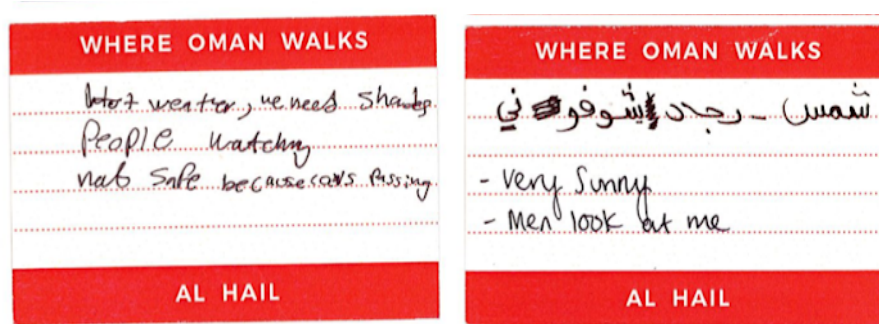 WHERE OMAN WALKS
Hot weater, we need shades
People watching
not safe because cars passing
AL HAIL
WHERE OMAN WALKS
شمس - رجال يشوفوني
- Very Sunny
- Men look at me
AL HAIL